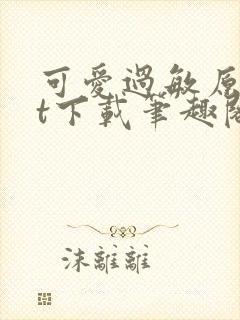 可愛過敏原
t下載筆趣閣
沫離離